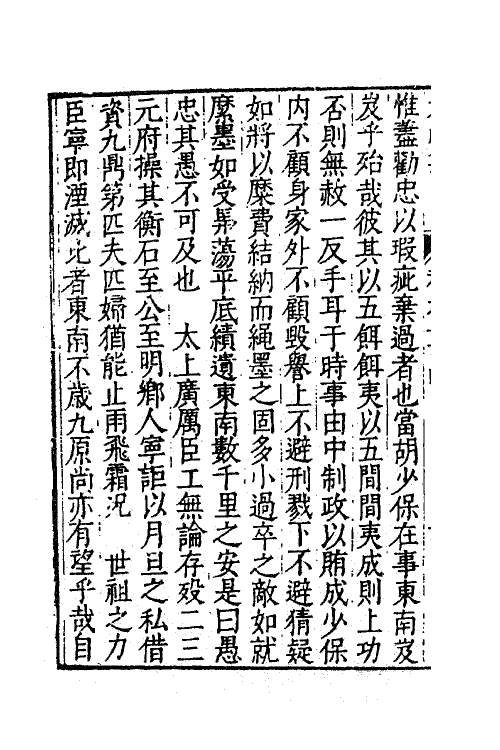 惟藎勸忠以瑕疵棄過者也當胡少保在事東南岌
岌乎殆哉彼其以五餌餌夷以五間間夷成則上功
否則無赦一反手耳于時事由中制政以賄成少保
内不顧身家外不顧毀譽上不避刑戮下不避猜疑
如將以糜費結納而繩墨之固多小過卒之敵如就
縻墨如受羿蕩平底績遺東南數千里之安是曰愚
忠其愚不可及也　太上廣厲臣工無論存歿二三
元府操其衡石至公至明鄉人寧詎以月旦之私借
資九鼎第匹夫匹婦猶能止雨飛霜況　世祖之力
臣寧即湮滅此者東南不歲九原尚亦有望乎哉自